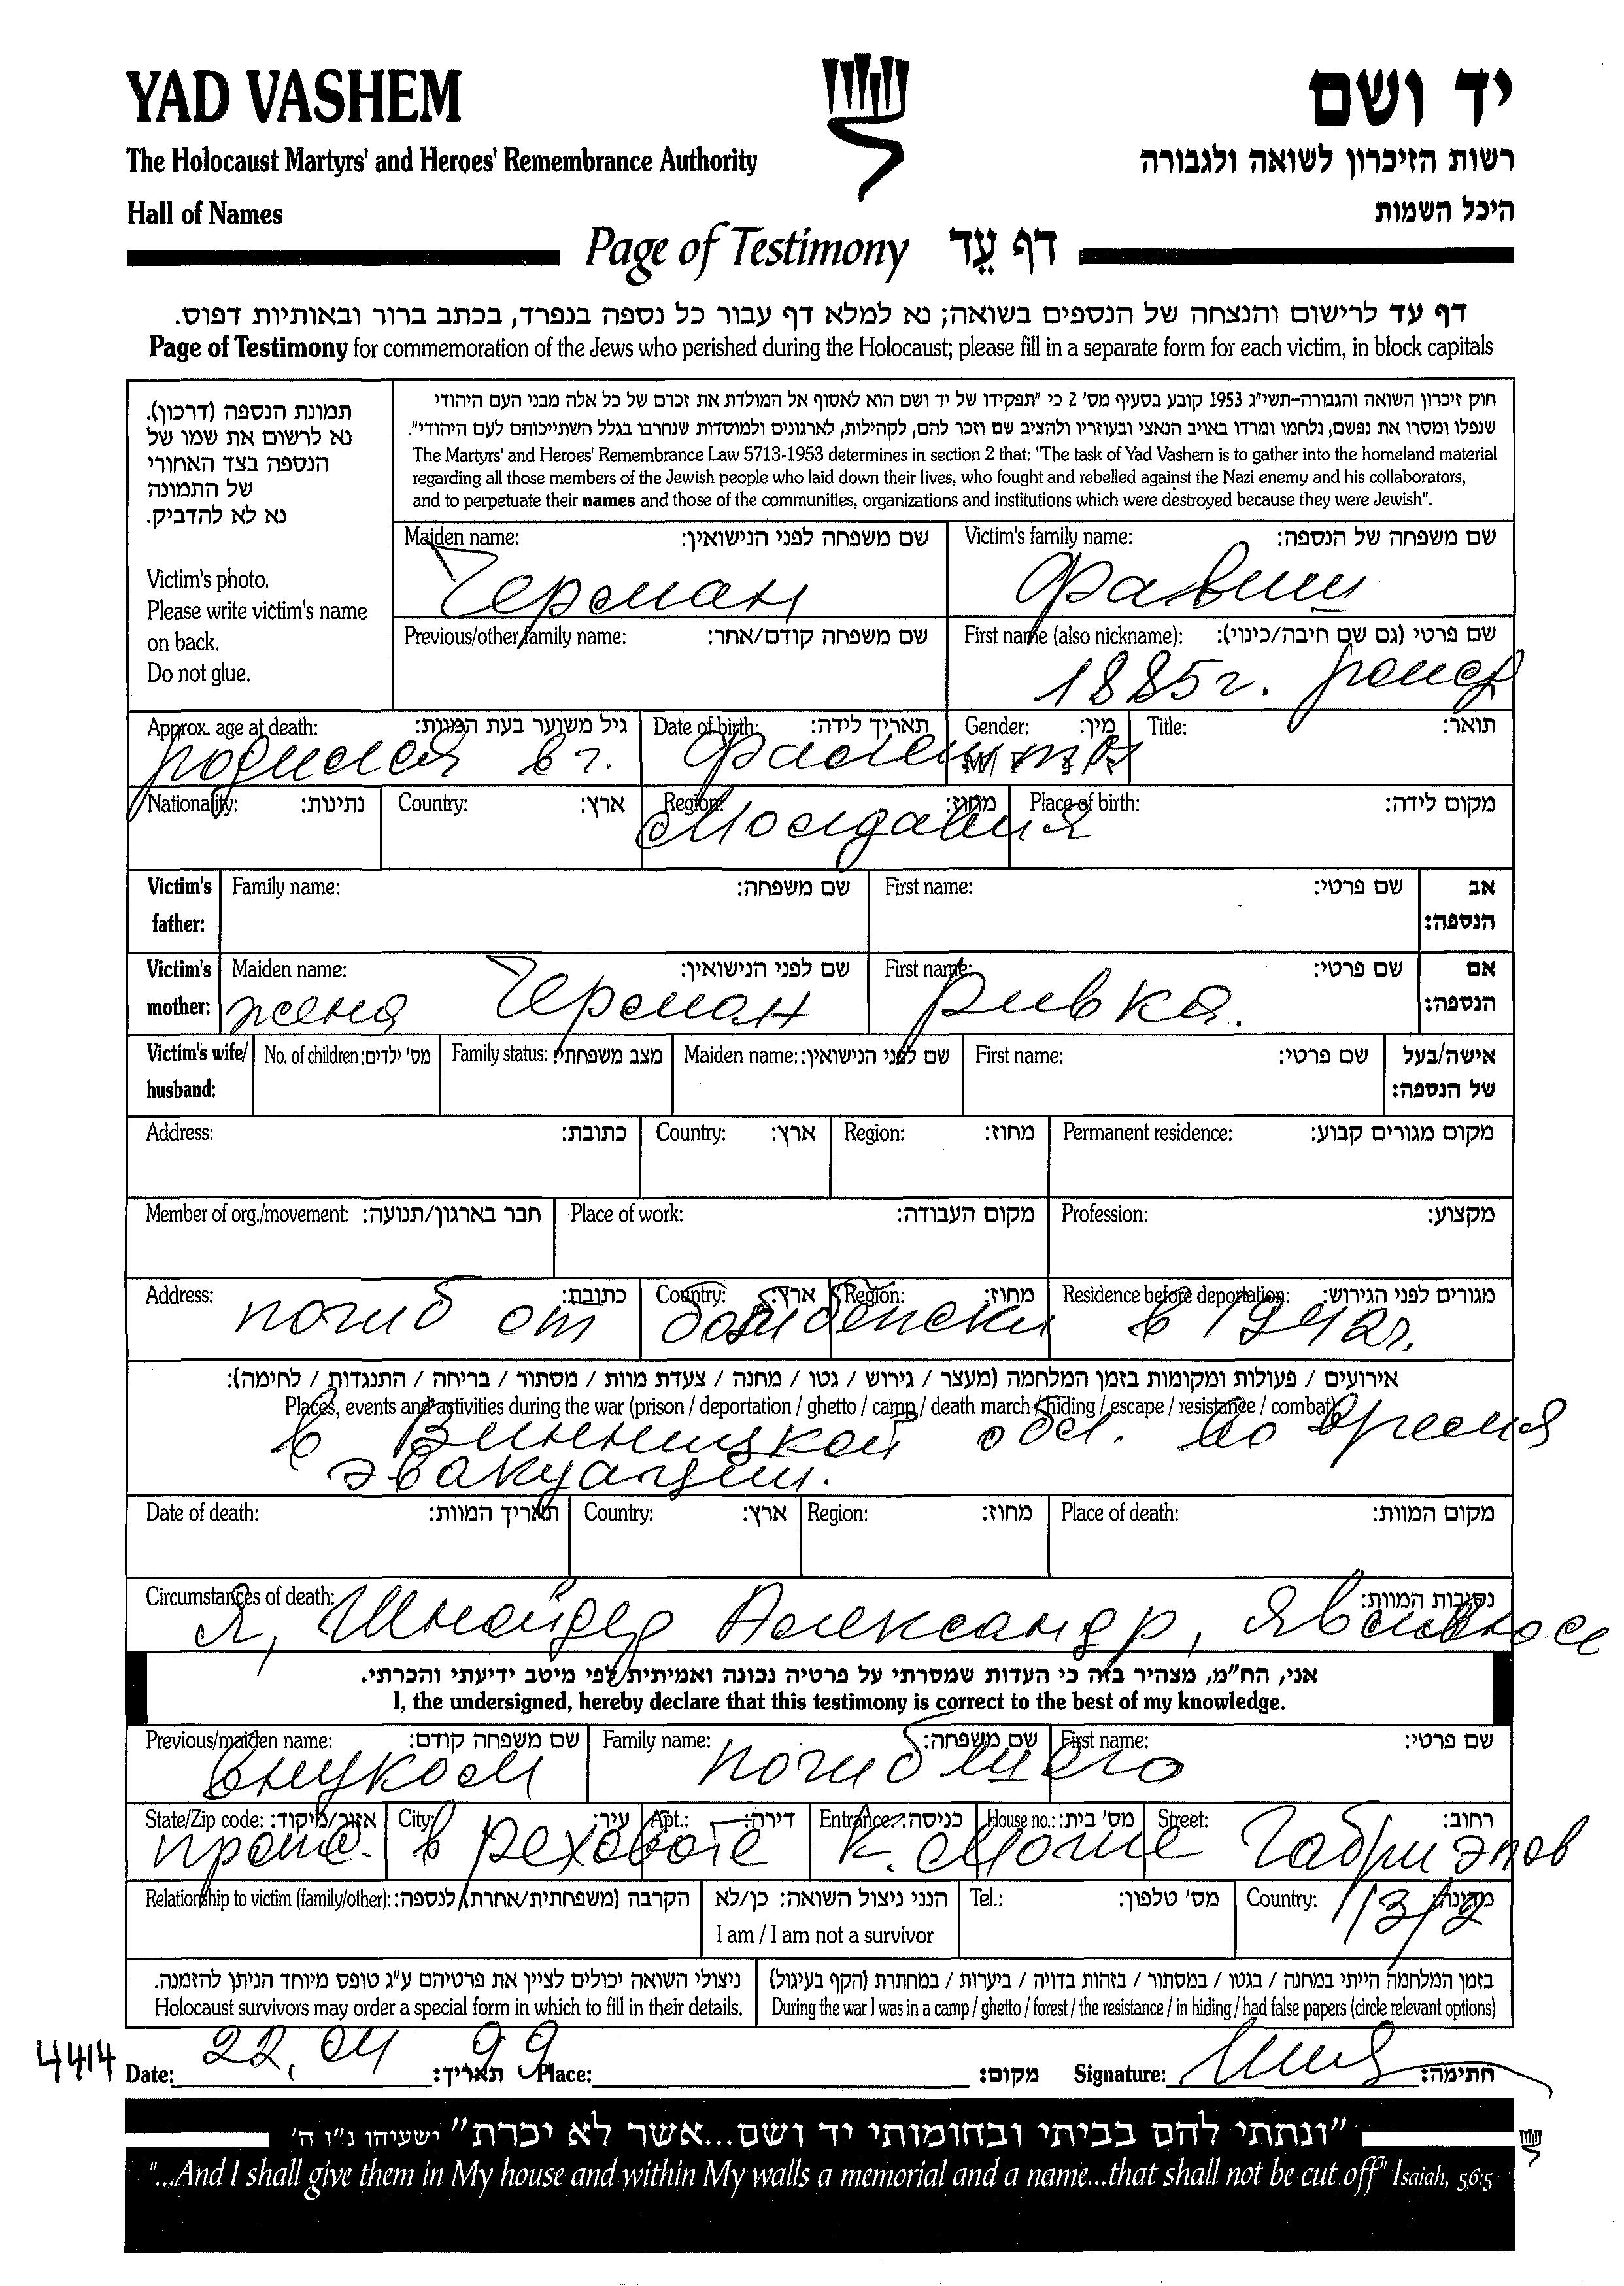 YAD VASHEM
יד ושם
The Holocaust Martyrs' and Heroes' Remembrance Authority
רשות הזיכרון לשואה ולגבורה
Hall of Names
היכל השמות
Page of Testimony דף עֵד
דף עד לרישום והנצחה של הנספים בשואה; נא למלא דף עבור כל נספה בנפרד, בכתב ברור ובאותיות דפוס.
Page of Testimony for commemoration of the Jews who perished during the Holocaust; please fill in a separate form for each victim, in block capitals
תמונת הנספה (דרכון).
נא לרשום את שמו של
הנספה בצד האחורי
של התמונה
נא לא להדביק.
Victim's photo.
Please write victim's name
on back.
Do not glue.
חוק זיכרון השואה והגבורה-תשי"ג 1953 קובע בסעיף מס' 2 כי "תפקידו של יד ושם הוא לאסוף אל המולדת את זכרם של כל אלה מבני העם היהודי
שנפלו ומסרו את נפשם, נלחמו ומרדו באויב הנאצי ובעוזריו ולהציב שם וזכר להם, לקהילות, לארגונים ולמוסדות שנחרבו בגלל השתייכותם לעם היהודי".
The Martyrs' and Heroes' Remembrance Law 5713-1953 determines in section 2 that: "The task of Yad Vashem is to gather into the homeland material
regarding all those members of the Jewish people who laid down their lives, who fought and rebelled against the Nazi enemy and his collaborators,
and to perpetuate their names and those of the communities, organizations and institutions which were destroyed because they were Jewish".
Maiden name: שם משפחה לפני הנישואין: Victim's family name: שם משפחה של הנספה:
Герман Фавиш
Previous/other family name: שם משפחה קודם/אחר: First name (also nickname): שם פרטי (גם שם חיבה/כינוי):
1885г.
Approx. age at death: גיל משוער בעת המוות: Date of birth: תאריך לידה: Gender: מין: Title: תואר:
родился в г. Фалешты
M / F ז / נ
Nationality: נתינות: Country: ארץ: Region: מחוז: Place of birth: מקום לידה:
Молдавия
Victim's father: Family name: שם משפחה: First name: שם פרטי: אב הנספה:
Victim's mother: Maiden name: שם לפני הנישואין: First name: שם פרטי: אם הנספה:
жена Герман Ривка.
Victim's wife/ husband: No. of children: מס' ילדים: Family status: מצב משפחתי: Maiden name: שם לפני הנישואין: First name: שם פרטי: אישה/בעל של הנספה:
Address: כתובת: Country: ארץ: Region: מחוז: Permanent residence: מקום מגורים קבוע:
Member of org./movement: חבר בארגון/תנועה: Place of work: מקום העבודה: Profession: מקצוע:
Address: כתובת: Country: ארץ: Region: מחוז: Residence before deportation: מגורים לפני הגירוש:
погиб от бомбёжки в 1942г.
אירועים / פעולות ומקומות בזמן המלחמה (מעצר / גירוש / גטו / מחנה / צעדת מוות / מסתור / בריחה / התנגדות / לחימה):
Places, events and activities during the war (prison / deportation / ghetto / camp / death march / hiding / escape / resistance / combat):
в Винницкой обл. во время
эвакуации.
Date of death: תאריך המוות: Country: ארץ: Region: מחוז: Place of death: מקום המוות:
Circumstances of death: נסיבות המוות:
Я, Шнайдер Александр, являюсь
אני, הח"מ, מצהיר בזה כי העדות שמסרתי על פרטיה נכונה ואמיתית לפי מיטב ידיעתי והכרתי.
I, the undersigned, hereby declare that this testimony is correct to the best of my knowledge.
Previous/maiden name: שם משפחה קודם: Family name: שם משפחה: First name: שם פרטי:
внуком погибшего
State/Zip code: אזור/מיקוד: City: עיר: Apt.: דירה: Entrance: כניסה: House no.: מס' בית: Street: רחוב:
прож. в Реховоте к. Моше Габриэлов
Relationship to victim (family/other): הקרבה (משפחתית/אחרת) לנספה: הנני ניצול השואה: כן/לא Tel.: מס' טלפון: Country: מדינה:
I am / I am not a survivor
13/2
ניצולי השואה יכולים לציין את פרטיהם ע"ג טופס מיוחד הניתן להזמנה.
Holocaust survivors may order a special form in which to fill in their details.
בזמן המלחמה הייתי במחנה / בגטו / במסתור / בזהות בדויה / ביערות / במחתרת (הקף בעיגול)
During the war I was in a camp / ghetto / forest / the resistance / in hiding / had false papers (circle relevant options)
4414 Date: 22.04 99 תאריך: Place: מקום: Signature: חתימה:
"ונתתי להם בביתי ובחומותי יד ושם...אשר לא יכרת" ישעיהו נ"ו ה'
"...And I shall give them in My house and within My walls a memorial and a name...that shall not be cut off" Isaiah, 56:5